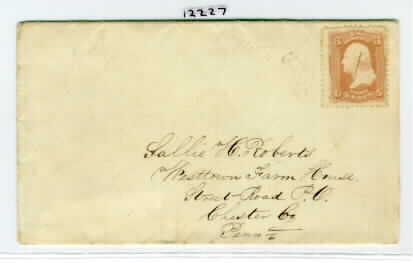 12227
Sallie H. Roberts
Westtown Farm House
Street Road P.O.
Chester Co
Penna